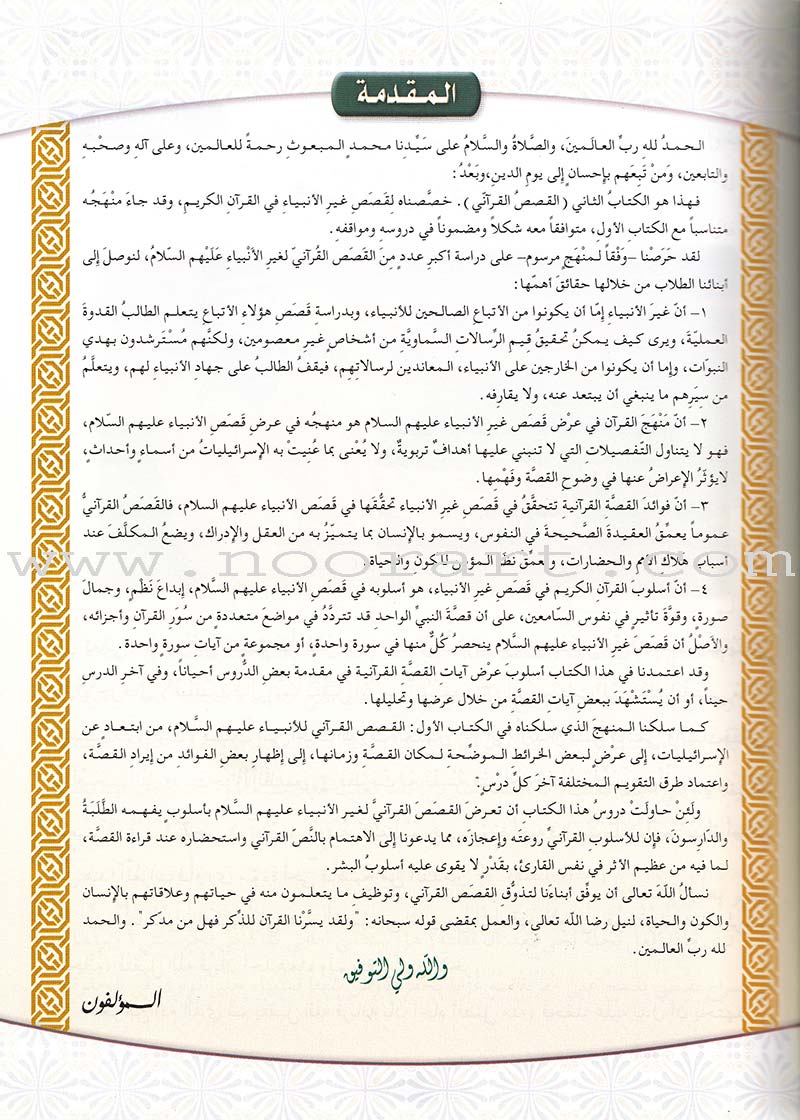 المقدمة
الحمدُ للهِ ربِّ العالَمينَ، والصَّلاةُ والسَّلامُ على سَيِّدِنا محمدٍ المبعوثِ رحمةً للعالمين، وعلى آلهِ وصحْبهِ
والتابعين، وَمَنْ تَبِعَهم بإحسانٍ إلى يومِ الدينِ،وبَعْدُ:
فهذا هو الكتابُ الثاني (القصصُ القرآنّي). خصَّصناه لقَصَصِ غيرِ الأنبياءِ في القرآنِ الكريمِ، وقد جاءَ منْهجُه
متناسباً مع الكتابِ الأولِ، متوافقاً معه شكلاً ومضموناً في دروسِهِ ومواقفهِ.
لقد حَرَصْنا –وَفْقاً لـمنْهَجٍ مرسومٍ– على دراسة أكبرِ عددٍ مِنَ القَصَصِ القُرآنيّ لغيرِ الأنْبياءِ عَلَيْهم السّلامُ، لنوصلَ إلى
أبنائنا الطلاب من خلالها حقائقَ أهمّها:
١– أنّ غيرَ الأنبياءِ إمّا أن يكونوا من الأتباعِ الصالحين للأنبياءِ، وبدراسةِ قَصَصِ هؤلاءِ الأتباعِ يتعلم الطالبُ القدوةَ
العمليّةَ، ويرى كيف يمكنُ تحقيقُ قِيمِ الرِّسالاتِ السَّماويَّةِ من أشخاصٍ غيرِ معصومين، ولكنَّهم مُسْتَرشدون بهدي
النبوّات، وإما أن يكونوا من الخارجين على الأنبياء، المعاندين لرسالاتِهم، فيقفُ الطالبُ على جهادِ الأنبياءِ لهم، ويتعلَّمُ
من سِيَرِهم ما ينبغي أن يبتعد عنه، ولا يقارفه.
٢– أنّ مَنْهَجَ القرآنِ في عرْض قَصَصِ غيرِ الأنبياء عليهم السلام هو منهجُه في عرضِ قَصَصِ الأنبياء عليهم السّلام،
فهو لا يتناول التّفصيلات التي لا تنبني عليها أهدافٌ تربويةٌ، ولا يُعْنى بما عُنِيتْ به الإسرائيلياتُ من أسماءٍ وأحداثٍ،
لايؤثّرُ الإعراضُ عنها في وضوحِ القصّة وفَهْمِها.
٣– أنّ فوائدَ القصّةِ القرآنيةِ تتحقَّقُ في قَصَصِ غيرِ الأنبياءِ تحقُّقَها في قَصَصِ الأنبياءِ عليهم السلام، فالقَصَصُ القرآنيُّ
عموماً يعمِّقُ العقيدةَ الصَّحيحةَ في النفوس، ويسمو بالإنسان بما يتميّزُ به من العقل والإدراك، ويضعُ المكلَّفَ عند
أسبابِ هلاكِ الأممِ والحضارات، ويعمقُ نظرَ المؤمنِ للكونِ والحياةِ.
www.noorart.com
٤– أنّ أسلوبَ القرآنِ الكريمِ في قَصَصِ غيرِ الأنبياء، هو أسلوبه في قَصَصِ الأنبياءِ عليهم السَّلام، إبداعَ نَظْمٍ، وجمالَ
صورةٍ، وقوَّةَ تأثيرٍ في نفوس السّامعين، على أن قصَّةَ النبيِّ الواحدِ قد تتردَّدُ في مواضعَ متعددةٍ من سُوَرِ القرآنِ وأجزائه،
والأصْلُ أن قَصَصَ غيرِ الأنبياء عليهم السلام ينحصرُ كُلٌّ منها في سورة واحدة، أو مجموعةٍ من آياتِ سورةٍ واحدة.
وقد اعتمدنا في هذا الكتاب أسلوبَ عرْض آياتِ القصَّةِ القرآنيةِ في مقدمة بعض الدُّروس أحياناً، وفي آخرِ الدرسِ
حيناً، أو أن يُسْتشْهَدَ ببعضِ آياتِ القصَّةِ من خلال عرضها وتحليلها.
كما سلكنا المنهجَ الذي سلكناه في الكتاب الأول: القصص القرآني للأنبياء عليهم السَّلام، من ابتعادٍ عن
الإسرائيليات، إلى عرْضٍ لبعض الخرائط الموضِّحة لمكان القصَّة وزمانها، إلى إظهارِ بعضِ الفوائد من إيرادِ القصَّة،
واعتماد طرق التقويم المختلفة آخرَ كلِّ درْسٍ.
ولَئِنْ حاولَتْ دروسُ هذا الكتابِ أن تعرضَ القصَصَ القرآنيَّ لغيرِ الأنبياءِ عليهم السَّلام بأسلوبٍ يفهمه الطَّلَبَةُ
والدَّارِسونَ، فإن للأسلوبِ القرآنيِّ روعتَه وإعجازَه، مما يدعونا إلى الاهتمام بالنَّص القرآني واستحضاره عند قراءة القصَّة،
لما فيه من عظيمِ الأثر في نفس القارئ، بقَدْرٍ لا يقوى عليه أسلوبُ البشر.
نسألُ اللّهَ تعالى أن يوفِّق أبناءَنا لتذوُّقِ القصَصِ القرآني، وتوظيفِ ما يتعلمون منه في حياتهم وعلاقاتهم بالإنسان
والكون والحياة، لنيل رضا اللّه تعالى، والعمل بمقضى قوله سبحانه: "ولقد يسَّرْنا القرآن للذِّكر فهل من مدّكر". والحمد
لله ربِّ العالمين.
والله ولي التوفيق
المـؤلفون